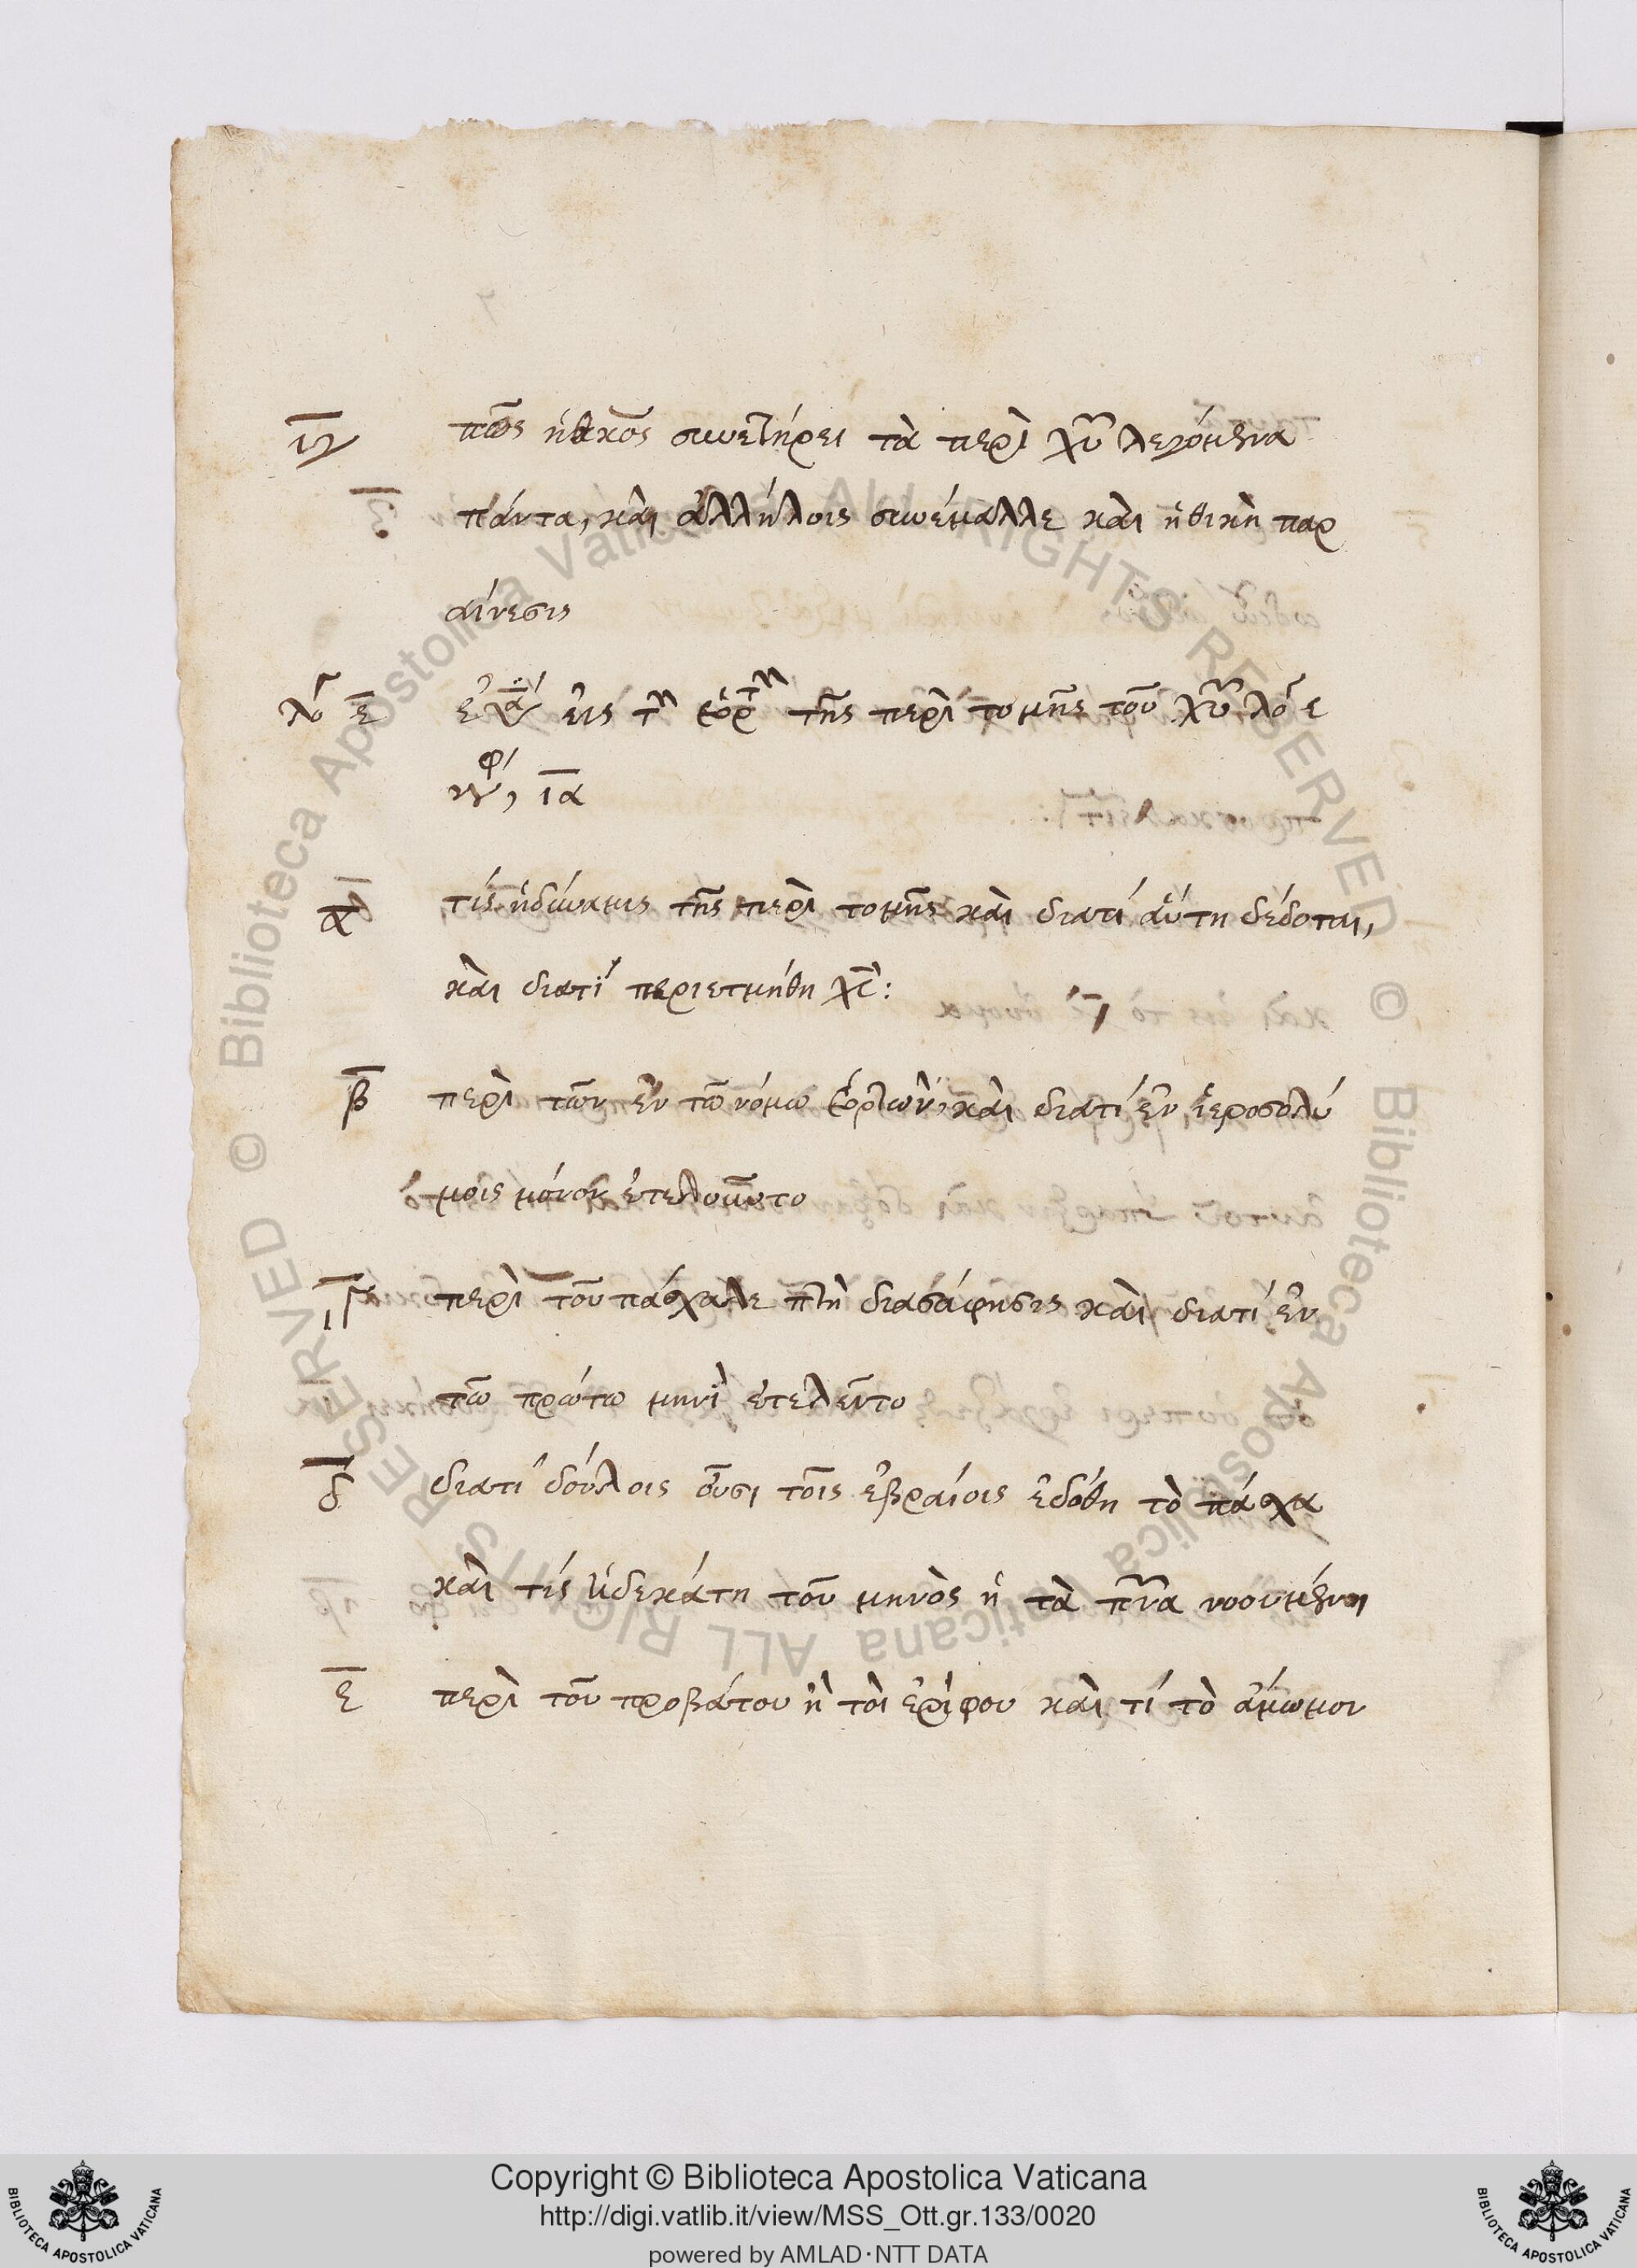 ιγ πῶς ἡ θκος συνετήρει τὰ περὶ χυ λεγόμενα
πάντα, καὶ ἀλλήλοις συνέβαλλε καὶ ἠθικὴ παρ
αίνεσις
λο ε εις τ εορτ τῆς περὶ τομῆς τοῦ χυ λό ε
ια
α τίς ἡ δύναμις τῆς περὶ τομῆς καὶ διατί αὕτη δέδοται,
καὶ διατί περιετμήθη χς:
β περὶ τῶν ἐν τῶ νόμω ἑορτῶν, καὶ διατί ἐν ἱεροσολύ
μοις μόνον ἐτελοῦντο
γ περὶ τοῦ πάσχα διασάφησις καὶ διατί ἐν
τῶ πρώτω μηνὶ ἐτελεῖτο
δ διατί δούλοις οὖσι τοῖς ἑβραίοις ἐδόθη τὸ πάσχα
καὶ τίς ἡ δεκάτη τοῦ μηνὸς ἡ τὰ πνα νοουμένη
ε περὶ τοῦ προβάτου ἢ τοῦ ἐρίφου καὶ τί τὸ ἄμωμον
© Biblioteca Apostolica Vaticana ALL RIGHTS RESERVED
© Biblioteca Apostolica Vaticana ALL RIGHTS RESERVED
Copyright © Biblioteca Apostolica Vaticana
http://digi.vatlib.it/view/MSS_Ott.gr.133/0020
powered by AMLAD·NTT DATA
BIBLIOTECA APOSTOLICA VATICANA
BIBLIOTECA APOSTOLICA VATICANA